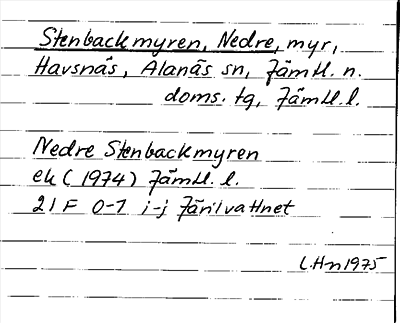 Stenbackmyren, Nedre, myr,
Havsnäs, Alanäs sn, Jämtl. n.
doms. tg, Jämtl. l.
Nedre Stenbackmyren
ek (1974) Jämtl. l.
21F 0-1 i-j Järilvattnet
L.Hn 1975